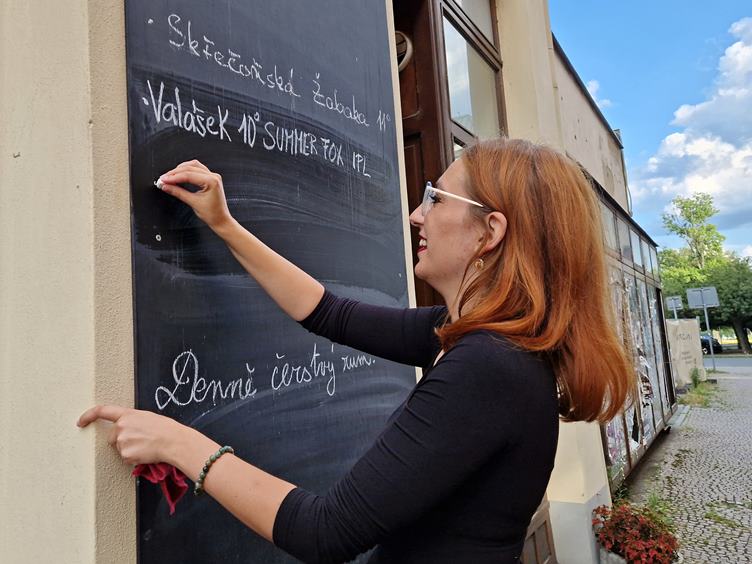 · Skřečoňská Žabaka 11°
· Valašek 10° SUMMER FOX IPL
Denně čerstvý rum.